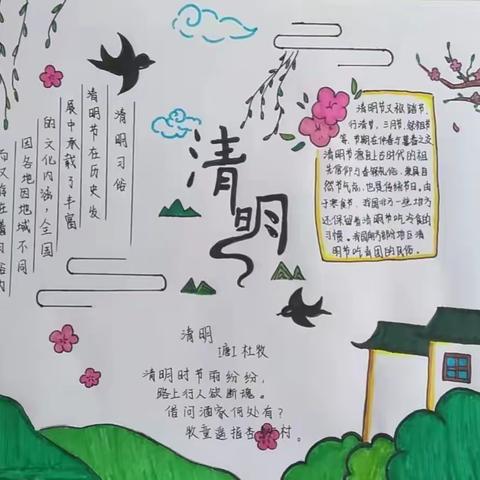 清明
清明习俗
清明节在历史发
展中承载了丰富
的文化内涵,全国
因各地因地域不同
而又存在着习俗内
清明节又叫踏青节、
行清节、三月节、祭祖节
等,节期在仲春与暮春之交
清明节源自上古时代的祖
先信仰与春祭礼俗,兼具自
然节气点,也是传统节日。由
于寒食节,我国北方一些地方
还保留着清明节吃冷食的
习惯。我国南方部分地区清
明节吃青团的风俗。
清明
[唐]杜牧
清明时节雨纷纷,
路上行人欲断魂。
借问酒家何处有?
牧童遥指杏 村。